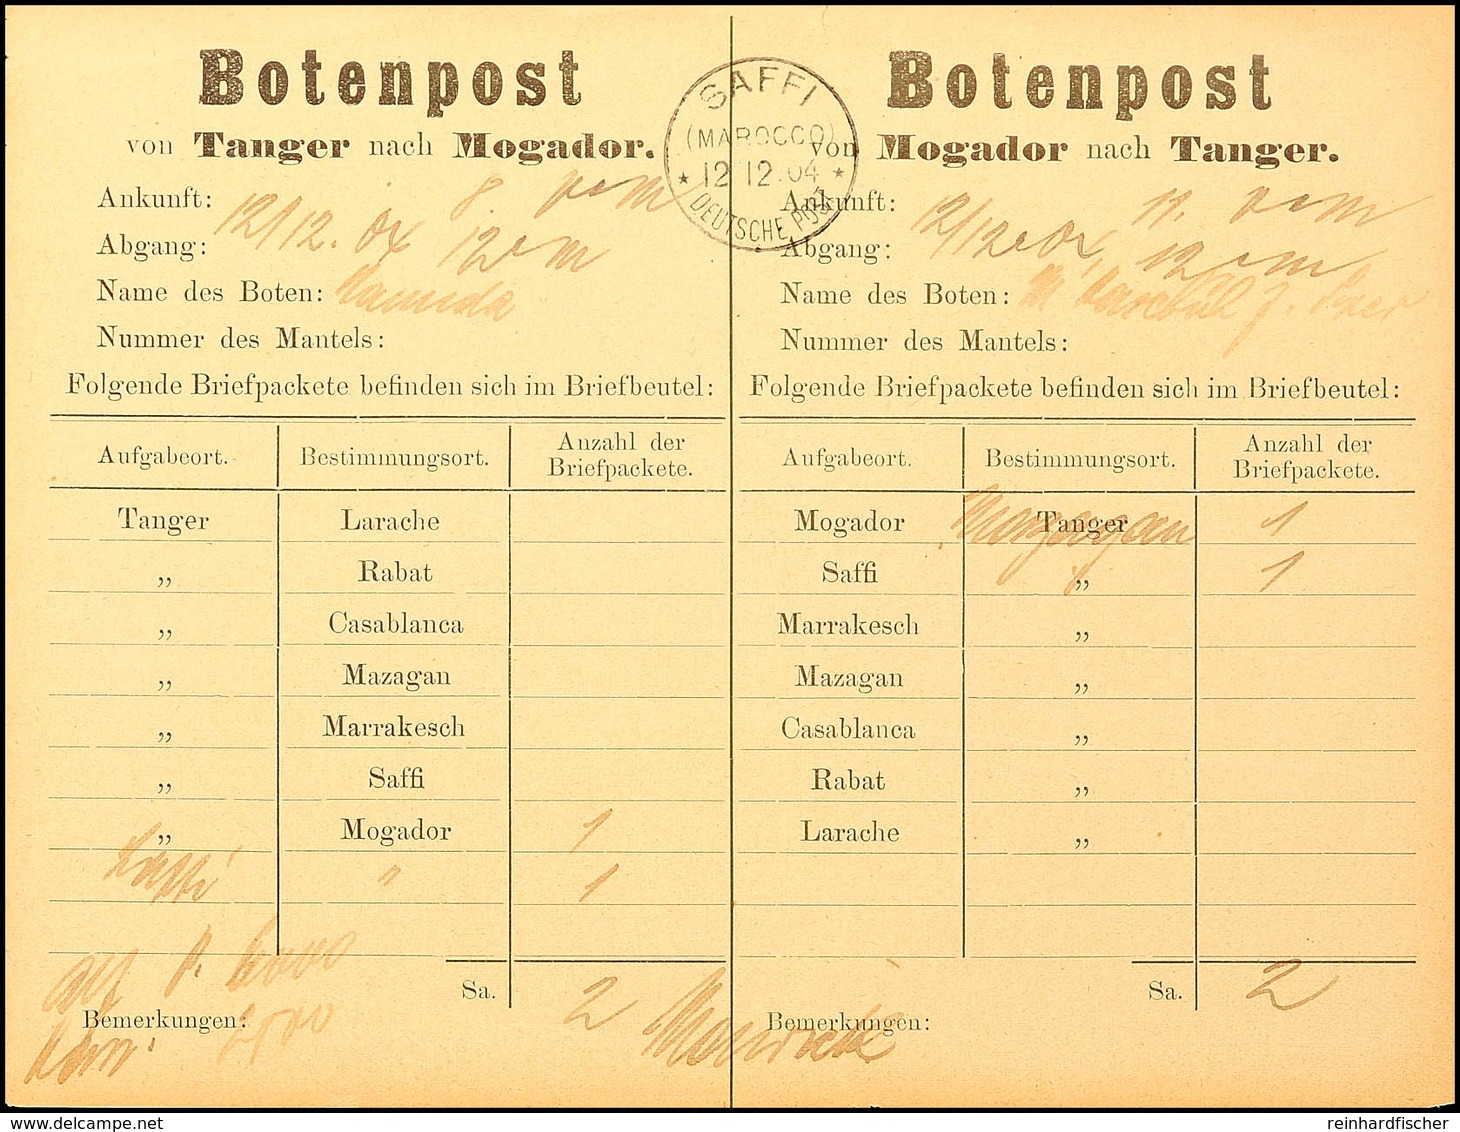 Botenpost
von Tanger nach Mogador.
Ankunft: 12/12. 04 8. vm
Abgang: 12 vm
Name des Boten: Hamida
Nummer des Mantels:
Folgende Briefpackete befinden sich im Briefbeutel:
Aufgabeort. Bestimmungsort. Anzahl der Briefpackete.
Tanger Larache
„ Rabat
„ Casablanca
„ Mazagan
„ Marrakesch
„ Saffi
„ Mogador 1
Saffi " 1
Sa. 2
Bemerkungen:
SAFFI
(MAROCCO)
* 12 12.04 *
DEUTSCHE POST
Botenpost
von Mogador nach Tanger.
Ankunft: 12/12 04 11. vm
Abgang: 12 vm
Name des Boten:
Nummer des Mantels:
Folgende Briefpackete befinden sich im Briefbeutel:
Aufgabeort. Bestimmungsort. Anzahl der Briefpackete.
Mogador Tanger Mazagan 1
Saffi „ 1
Marrakesch „
Mazagan „
Casablanca „
Rabat „
Larache „
Sa. 2
Bemerkungen:
delcampe.net
reinhardfischer